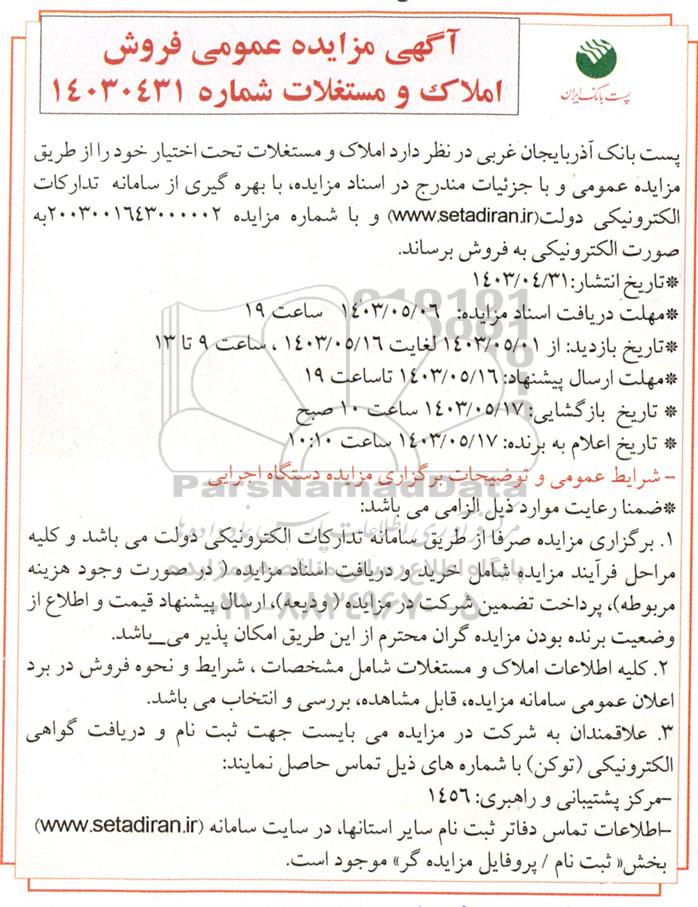 آگهی مزایده عمومی فروش
املاک و مستغلات شماره ۱۴۰۳۰۴۳۱
پست بانک ایران
پست بانک آذربایجان غربی در نظر دارد املاک و مستغلات تحت اختیار خود را از طریق
مزایده عمومی و با جزئیات مندرج در اسناد مزایده، با بهره گیری از سامانه تدارکات
الکترونیکی دولت(www.setadiran.ir) و با شماره مزایده ۲۰۰۳۰۰۱۶۴۳۰۰۰۰۰۲به
صورت الکترونیکی به فروش برساند.
*تاریخ انتشار:۱۴۰۳/۰۴/۳۱
*مهلت دریافت اسناد مزایده: ۱۴۰۳/۰۵/۰۶ ساعت ۱۹
*تاریخ بازدید: از ۱۴۰۳/۰۵/۰۱ لغایت ۱۴۰۳/۰۵/۱۶ ، ساعت ۹ تا ۱۳
*مهلت ارسال پیشنهاد: ۱۴۰۳/۰۵/۱۶ تاساعت ۱۹
* تاریخ بازگشایی: ۱۴۰۳/۰۵/۱۷ ساعت ۱۰ صبح
* تاریخ اعلام به برنده: ۱۴۰۳/۰۵/۱۷ ساعت ۱۰:۱۰
- شرایط عمومی و توضیحات برگزاری مزایده دستگاه اجرایی
ParsNamadData
*ضمنا رعایت موارد ذیل الزامی می باشد:
۱. برگزاری مزایده صرفا از طریق سامانه تدارکات الکترونیکی دولت می باشد و کلیه
مراحل فرآیند مزایده شامل خرید و دریافت اسناد مزایده ( در صورت وجود هزینه
مربوطه)، پرداخت تضمین شرکت در مزایده ( ودیعه)، ارسال پیشنهاد قیمت و اطلاع از
۰۲۱-۸۸۳۴۹۶۷۰-۵
وضعیت برنده بودن مزایده گران محترم از این طریق امکان پذیر می_باشد.
۲. کلیه اطلاعات املاک و مستغلات شامل مشخصات ، شرایط و نحوه فروش در برد
اعلان عمومی سامانه مزایده، قابل مشاهده، بررسی و انتخاب می باشد.
۳. علاقمندان به شرکت در مزایده می بایست جهت ثبت نام و دریافت گواهی
الکترونیکی (توکن) با شماره های ذیل تماس حاصل نمایند:
-مرکز پشتیبانی و راهبری: ۱۴۵۶
-اطلاعات تماس دفاتر ثبت نام سایر استانها، در سایت سامانه (www.setadiran.ir)
بخش« ثبت نام / پروفایل مزایده گر» موجود است.